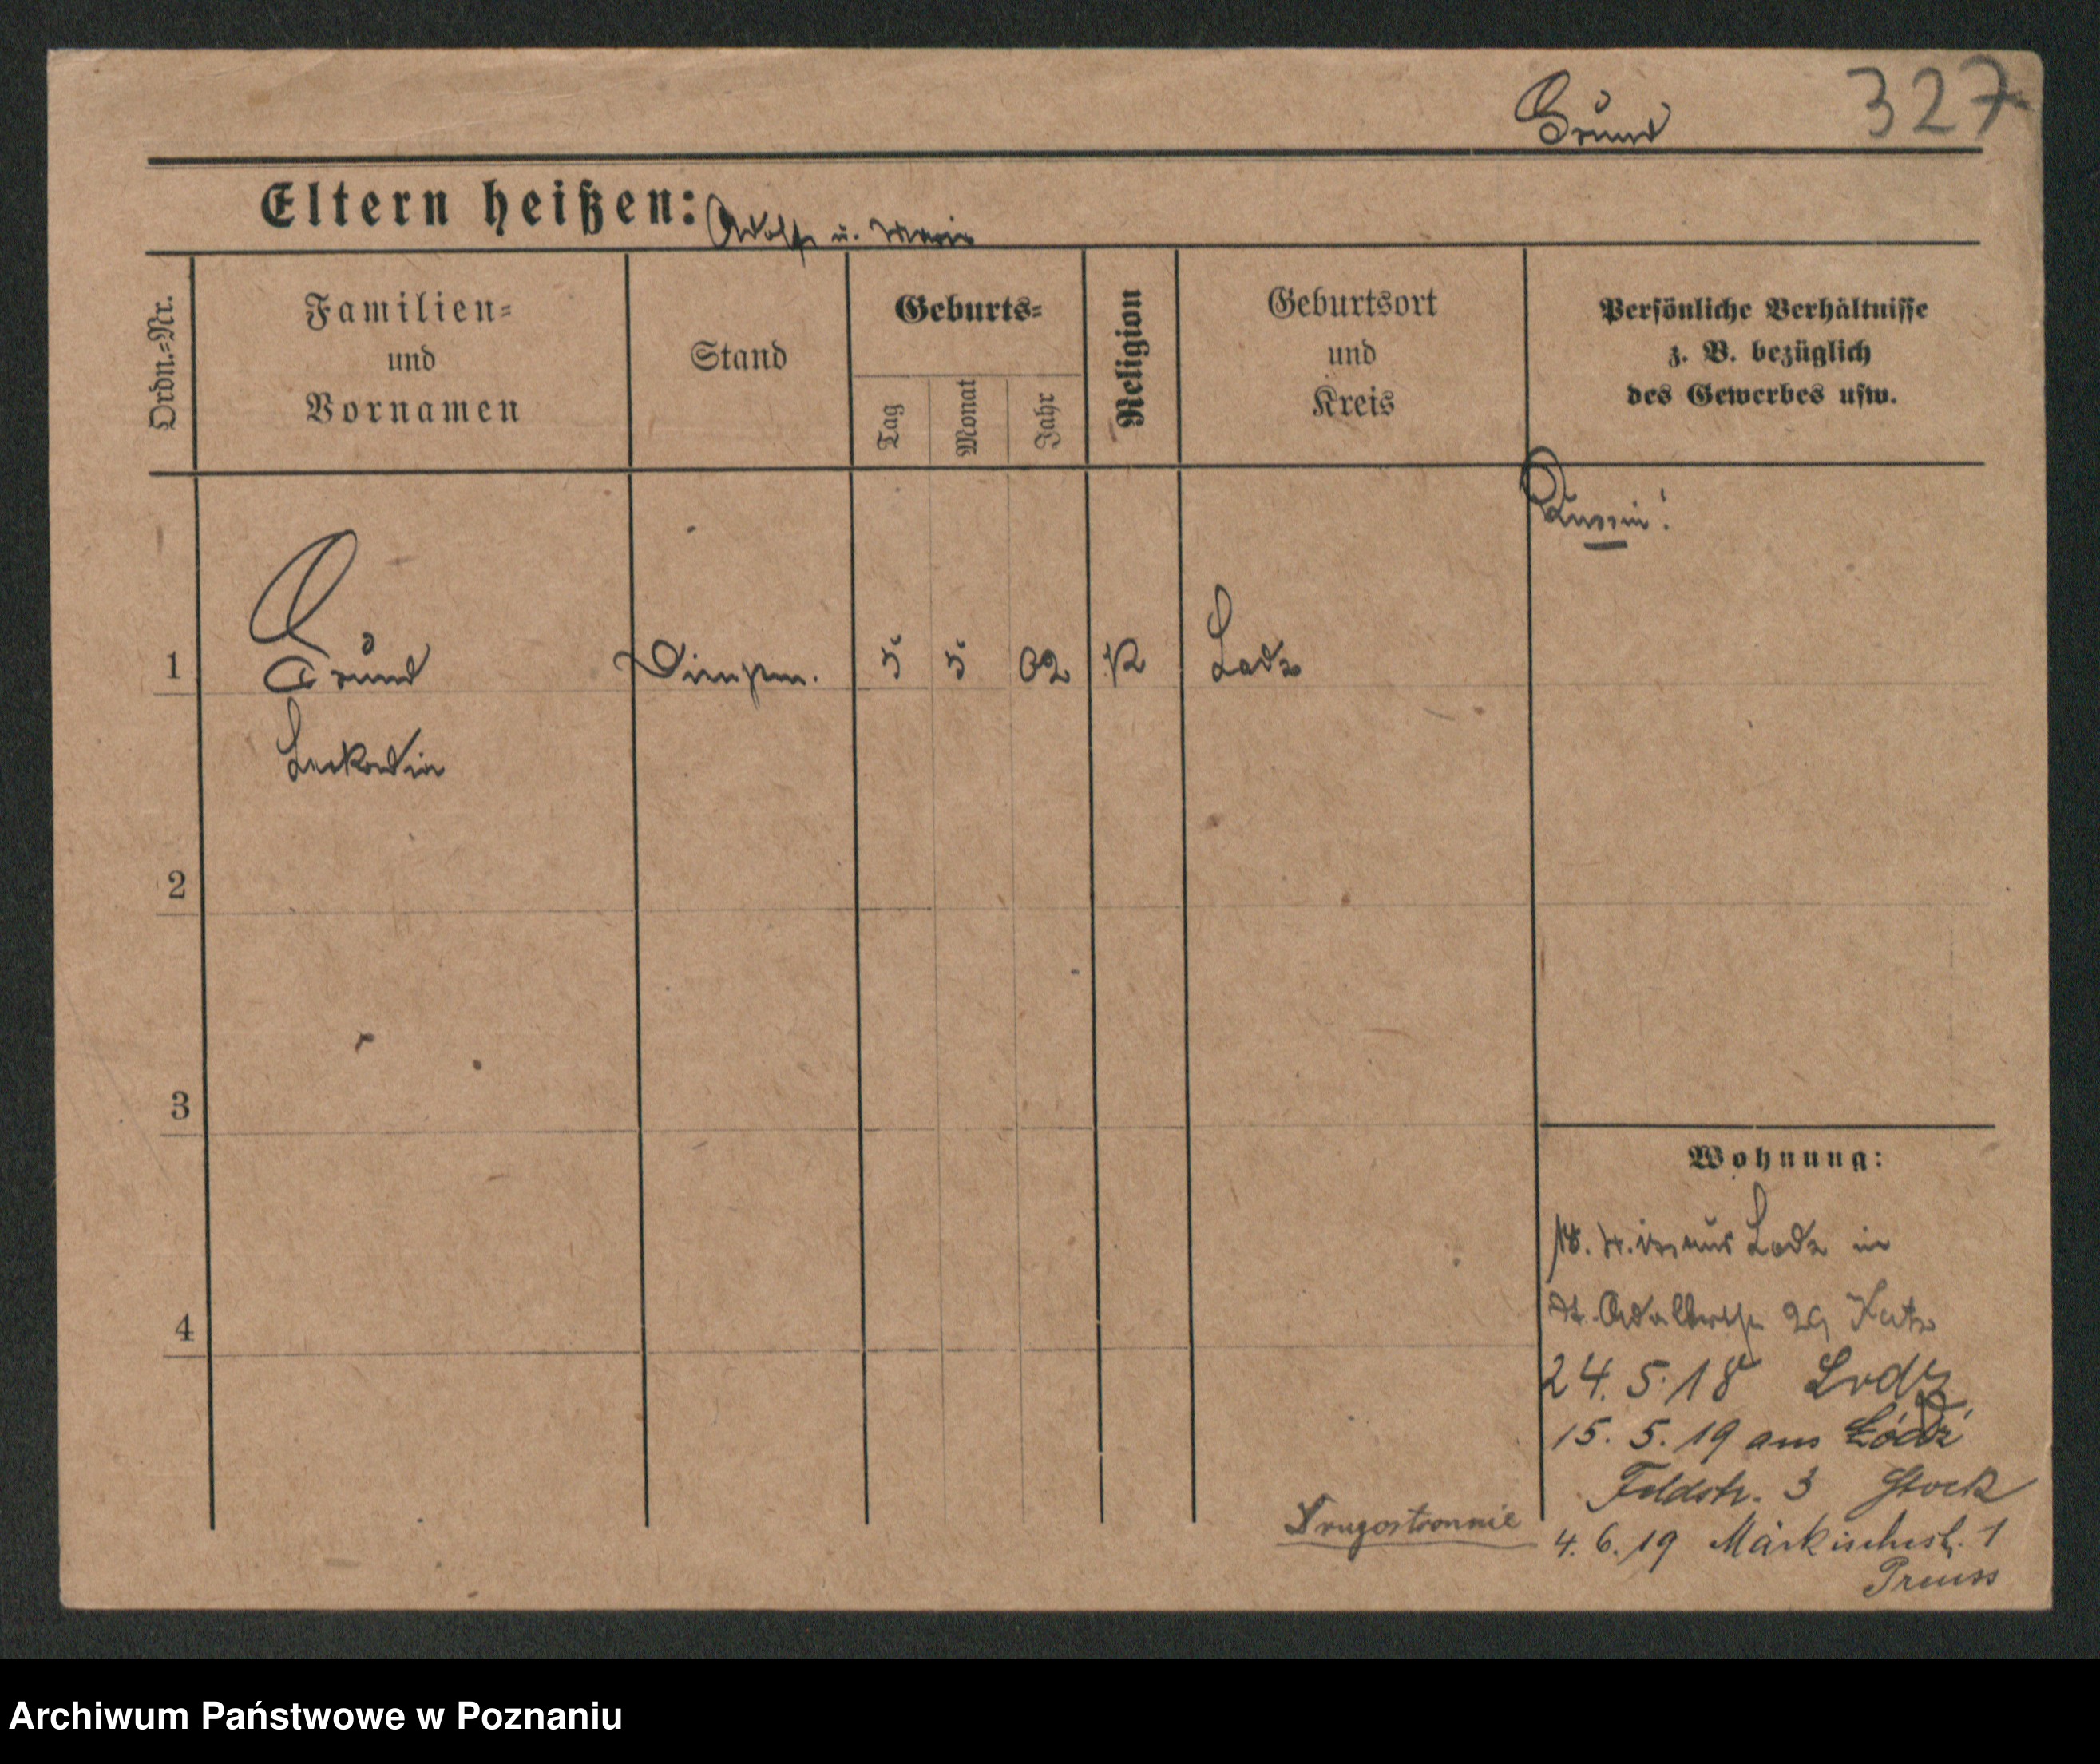 Grund
327
Eltern heißen: Adolf u. Marie
Ordn.-Nr.
Familien-
und
Vornamen
Stand
Geburts-
Tag
Monat
Jahr
Religion
Geburtsort
und
Kreis
Persönliche Verhältnisse
z. B. bezüglich
des Gewerbes usw.
Russin!
1 Grund 5 5 02 K Lodz
Leokadia
2
3
4
Wohnung:
aus Lodz in
St. Adalbertstr 29 Katz
24.5.18 Lodz
15. 5. 19 aus Łódź
Feldstr. 3 Stock
4. 6. 19 Märkischestr. 1
Preuss
Drugostronnie
Archiwum Państwowe w Poznaniu